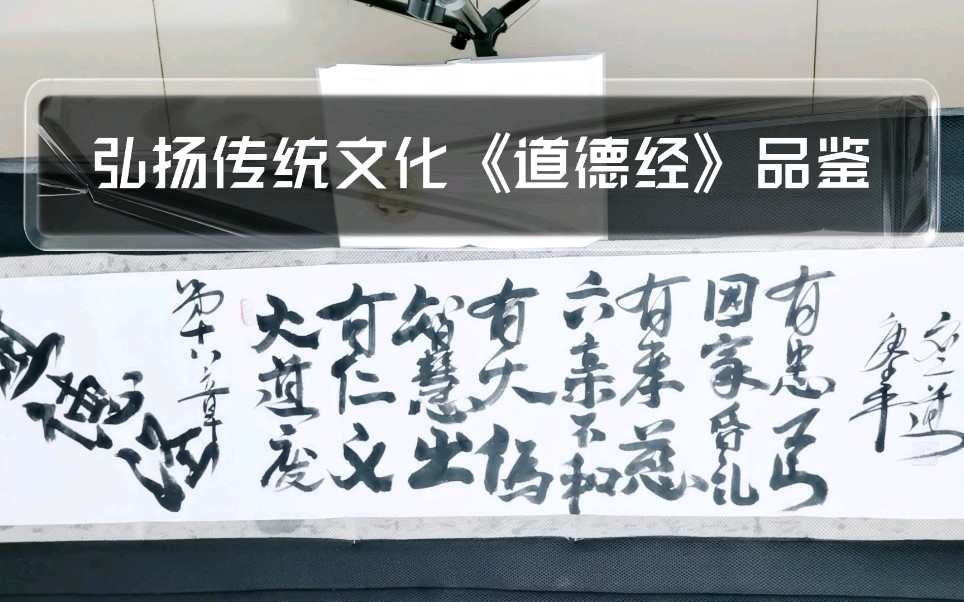 弘扬传统文化《道德经》品鉴
第十八章
大道废
有仁义
智慧出
有大伪
六亲不和
有孝慈
国家昏乱
有忠臣